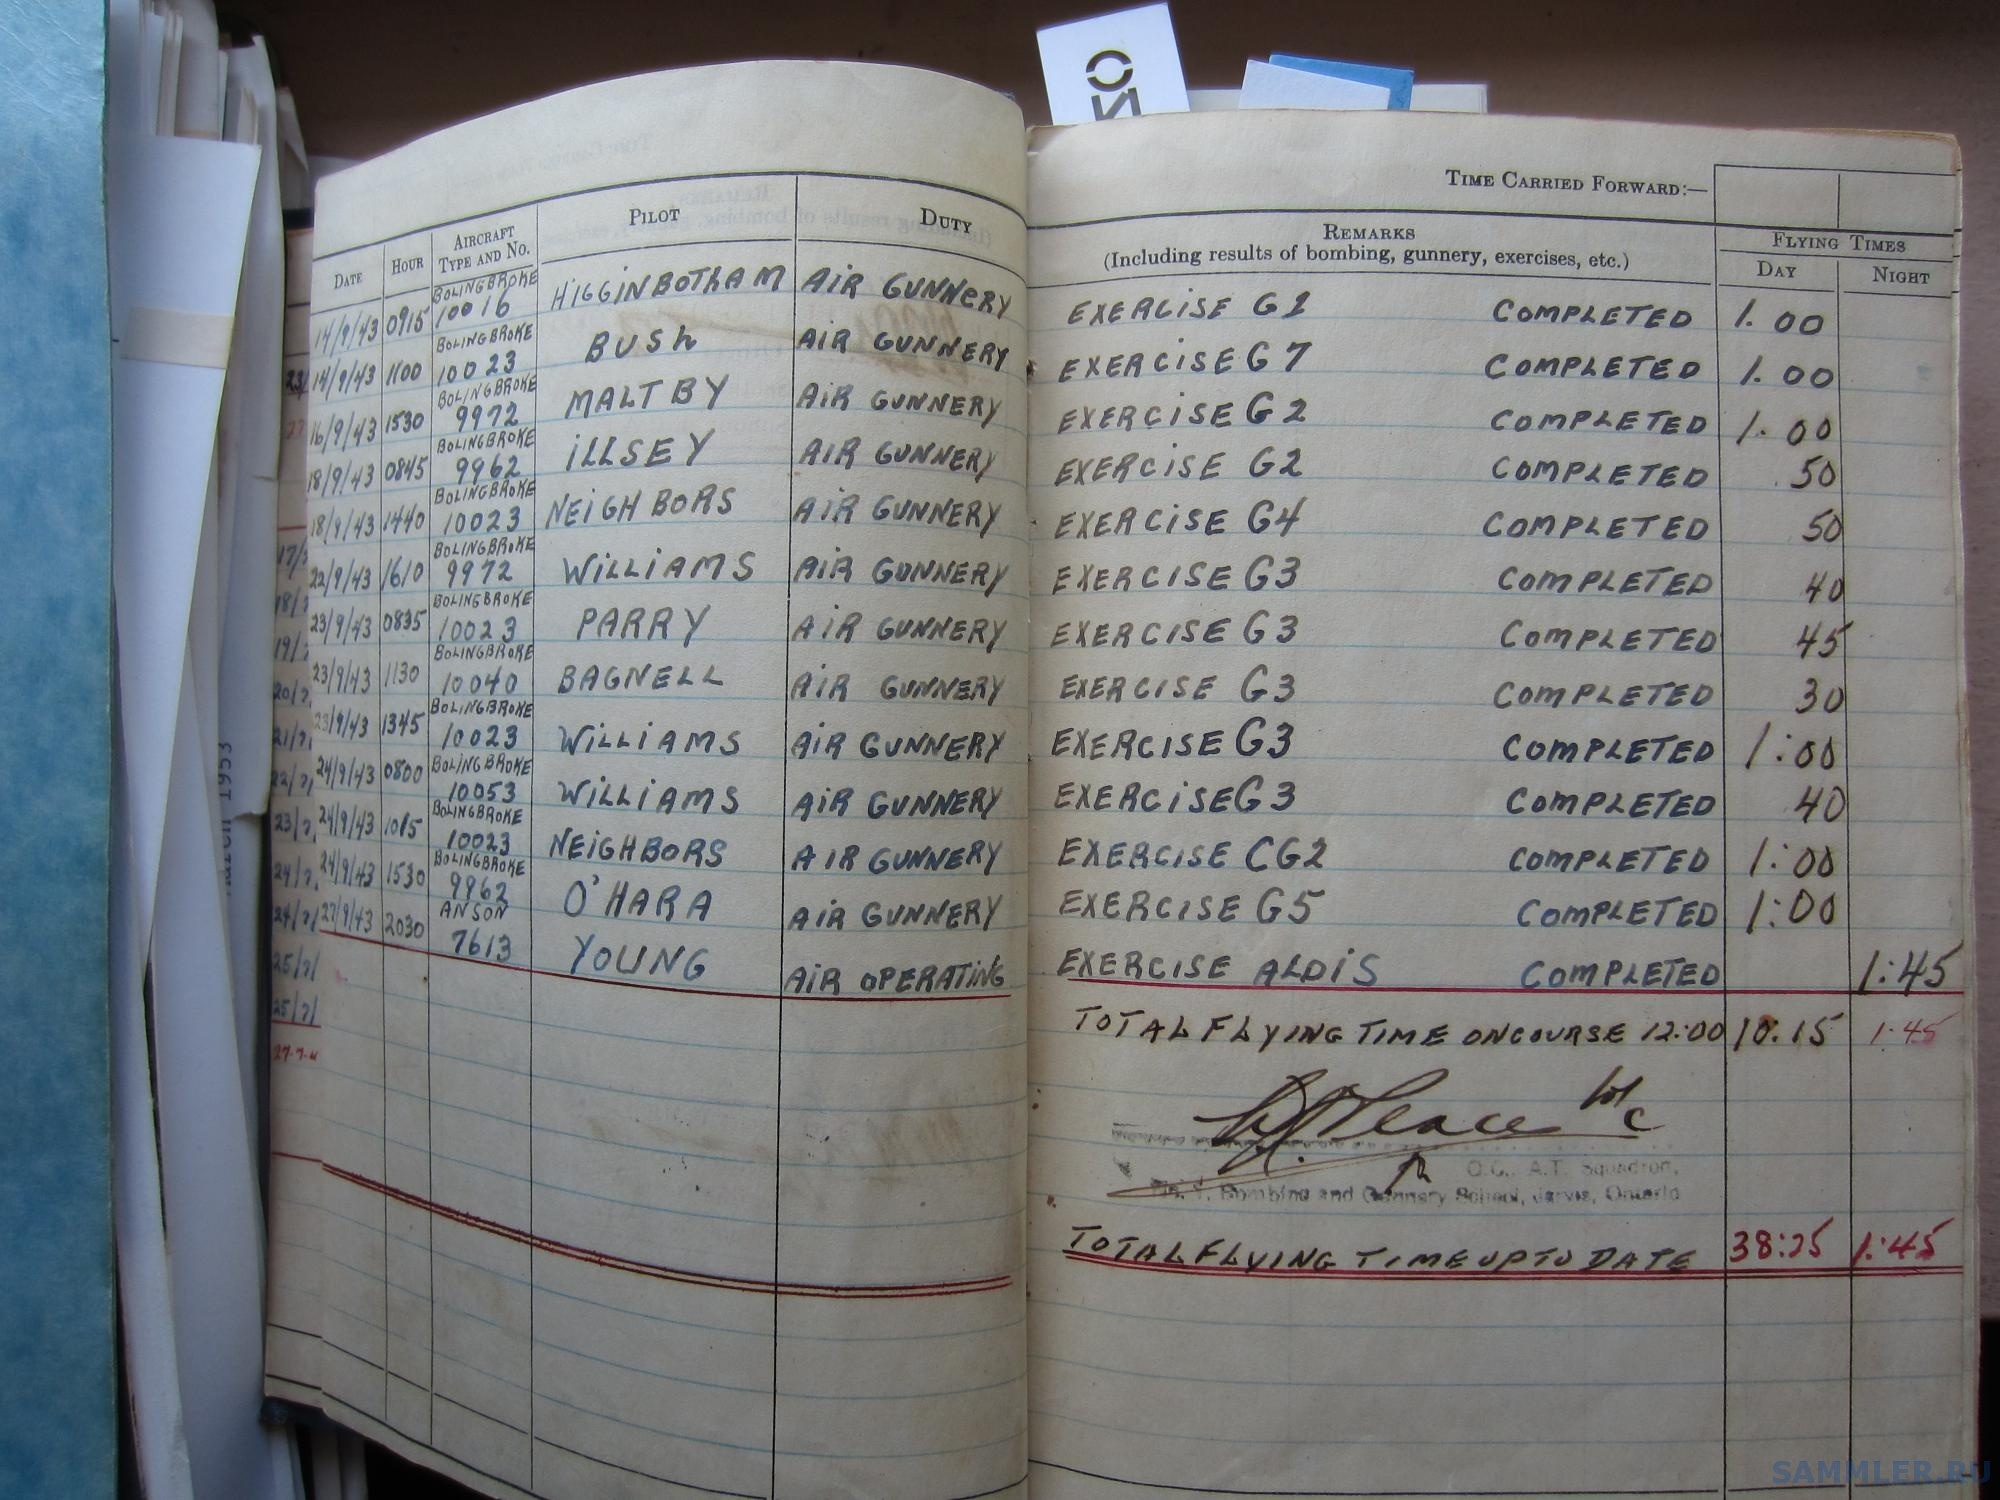 TIME CARRIED FORWARD:—
DATE HOUR AIRCRAFT TYPE AND No. PILOT DUTY REMARKS (Including results of bombing, gunnery, exercises, etc.) FLYING TIMES DAY NIGHT
14/9/43 0915 BOLINGBROKE 10016 HIGGINBOTHAM AIR GUNNERY EXERCISE G1 COMPLETED 1.00
14/9/43 1100 BOLINGBROKE 10023 BUSH AIR GUNNERY EXERCISE G7 COMPLETED 1.00
16/9/43 1530 BOLINGBROKE 9972 MALTBY AIR GUNNERY EXERCISE G2 COMPLETED 1.00
18/9/43 0845 BOLINGBROKE 9962 ILLSEY AIR GUNNERY EXERCISE G2 COMPLETED .50
18/9/43 1440 BOLINGBROKE 10023 NEIGHBORS AIR GUNNERY EXERCISE G4 COMPLETED 50
22/9/43 1610 BOLINGBROKE 9972 WILLIAMS AIR GUNNERY EXERCISE G3 COMPLETED 40
23/9/43 0835 BOLINGBROKE 10023 PARRY AIR GUNNERY EXERCISE G3 COMPLETED 45
23/9/43 1130 BOLINGBROKE 10040 BAGNELL AIR GUNNERY EXERCISE G3 COMPLETED 30
23/9/43 1345 BOLINGBROKE 10023 WILLIAMS AIR GUNNERY EXERCISE G3 COMPLETED 1:00
24/9/43 0800 BOLINGBROKE 10053 WILLIAMS AIR GUNNERY EXERCISE G3 COMPLETED 40
24/9/43 1015 BOLINGBROKE 10023 NEIGHBORS AIR GUNNERY EXERCISE CG2 COMPLETED 1:00
24/9/43 1530 BOLINGBROKE 9962 O'HARA AIR GUNNERY EXERCISE G5 COMPLETED 1:00
27/9/43 2030 ANSON 7613 YOUNG AIR OPERATING EXERCISE ALDIS COMPLETED 1:45
TOTAL FLYING TIME ON COURSE 12:00 10.15 1:45
O.C., A.T. Squadron,
Bombing and Gunnery School, Jarvis, Ontario
TOTAL FLYING TIME UP TO DATE 38:25 1:45
SAMMLER.RU